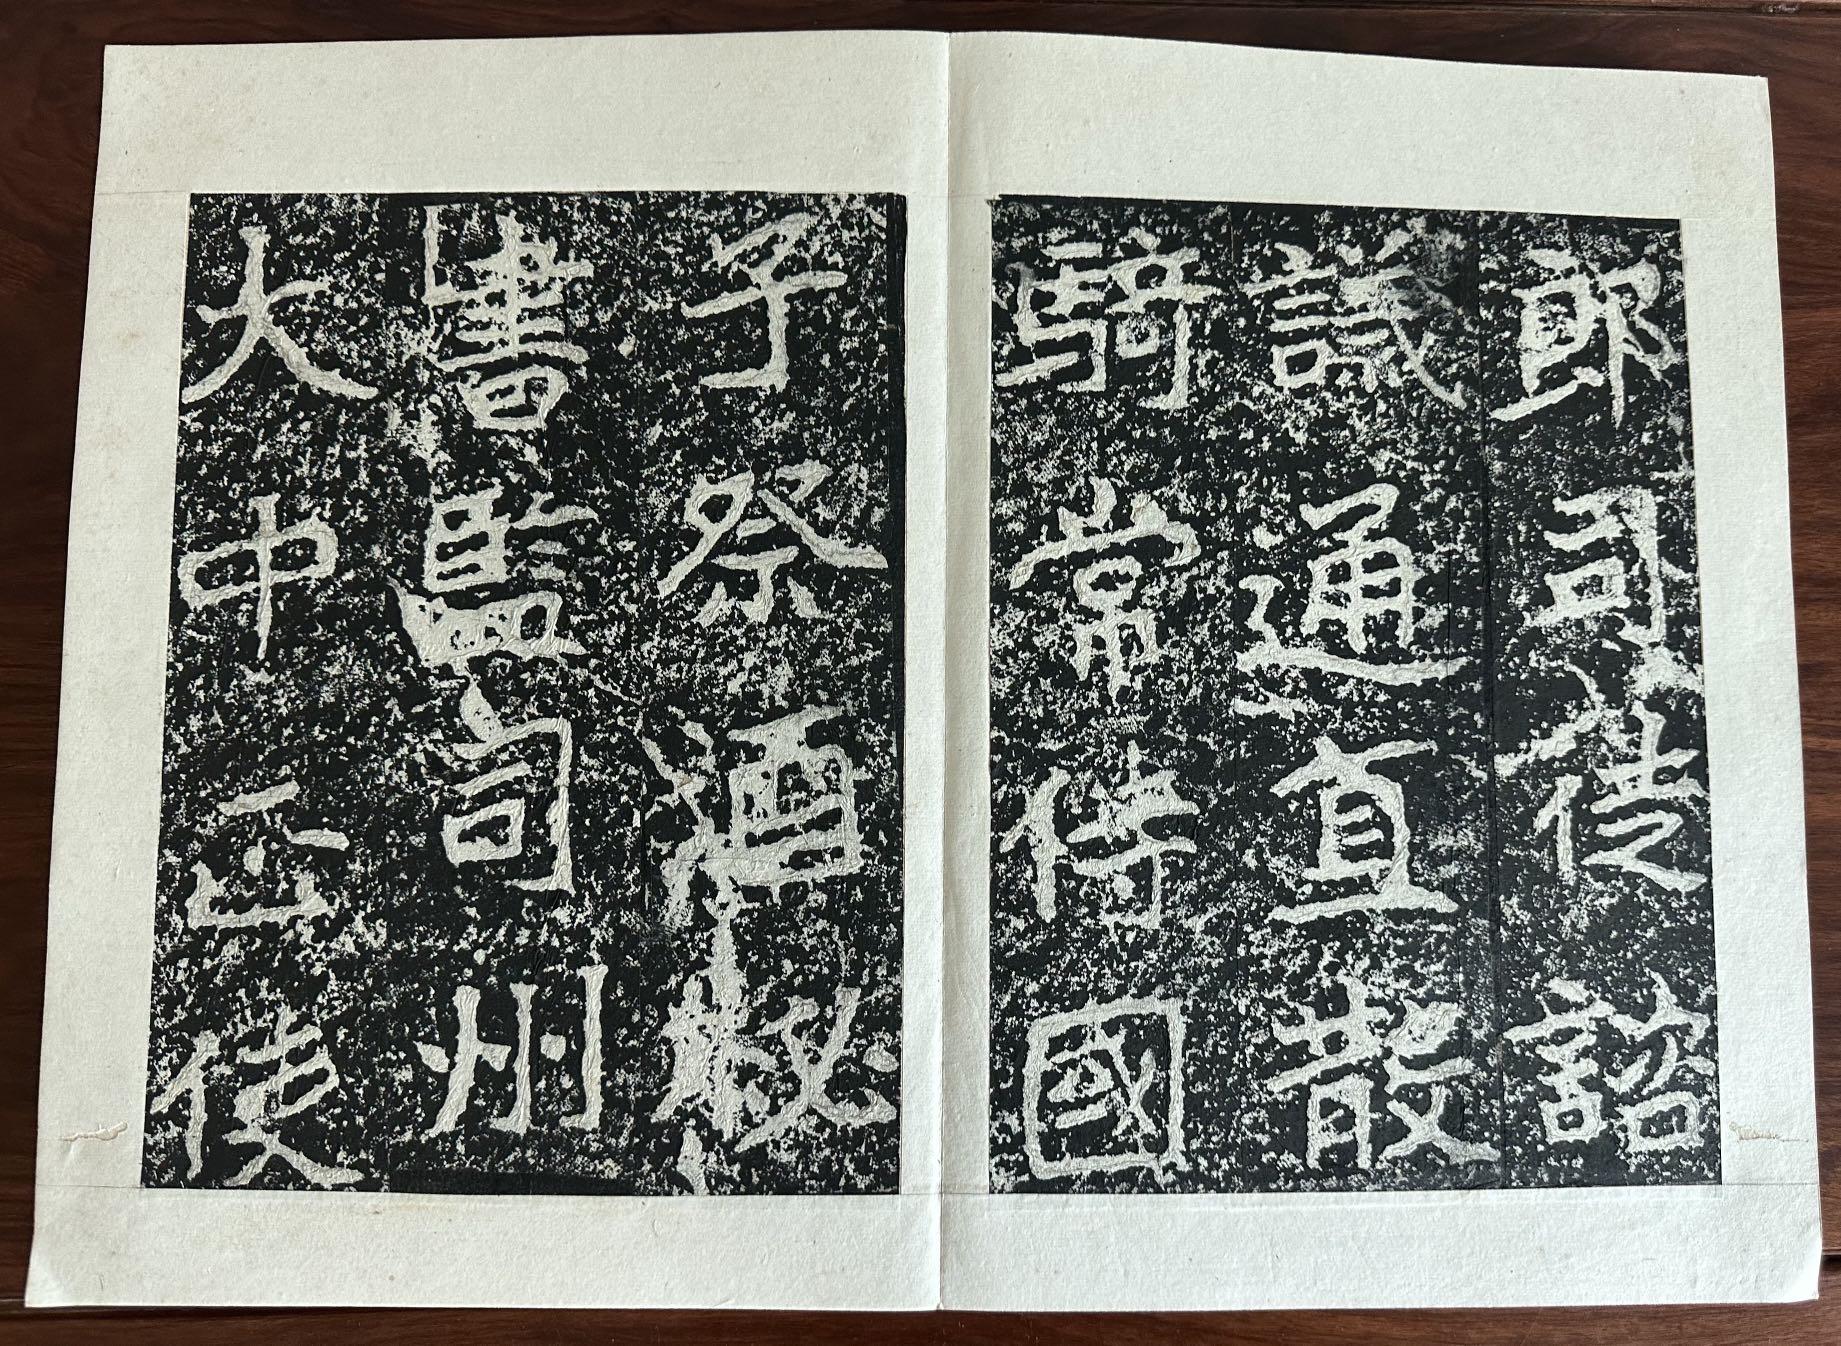 郎司徒諮
議通直散
騎常侍國
子祭酒秘
書監司州
大中正使